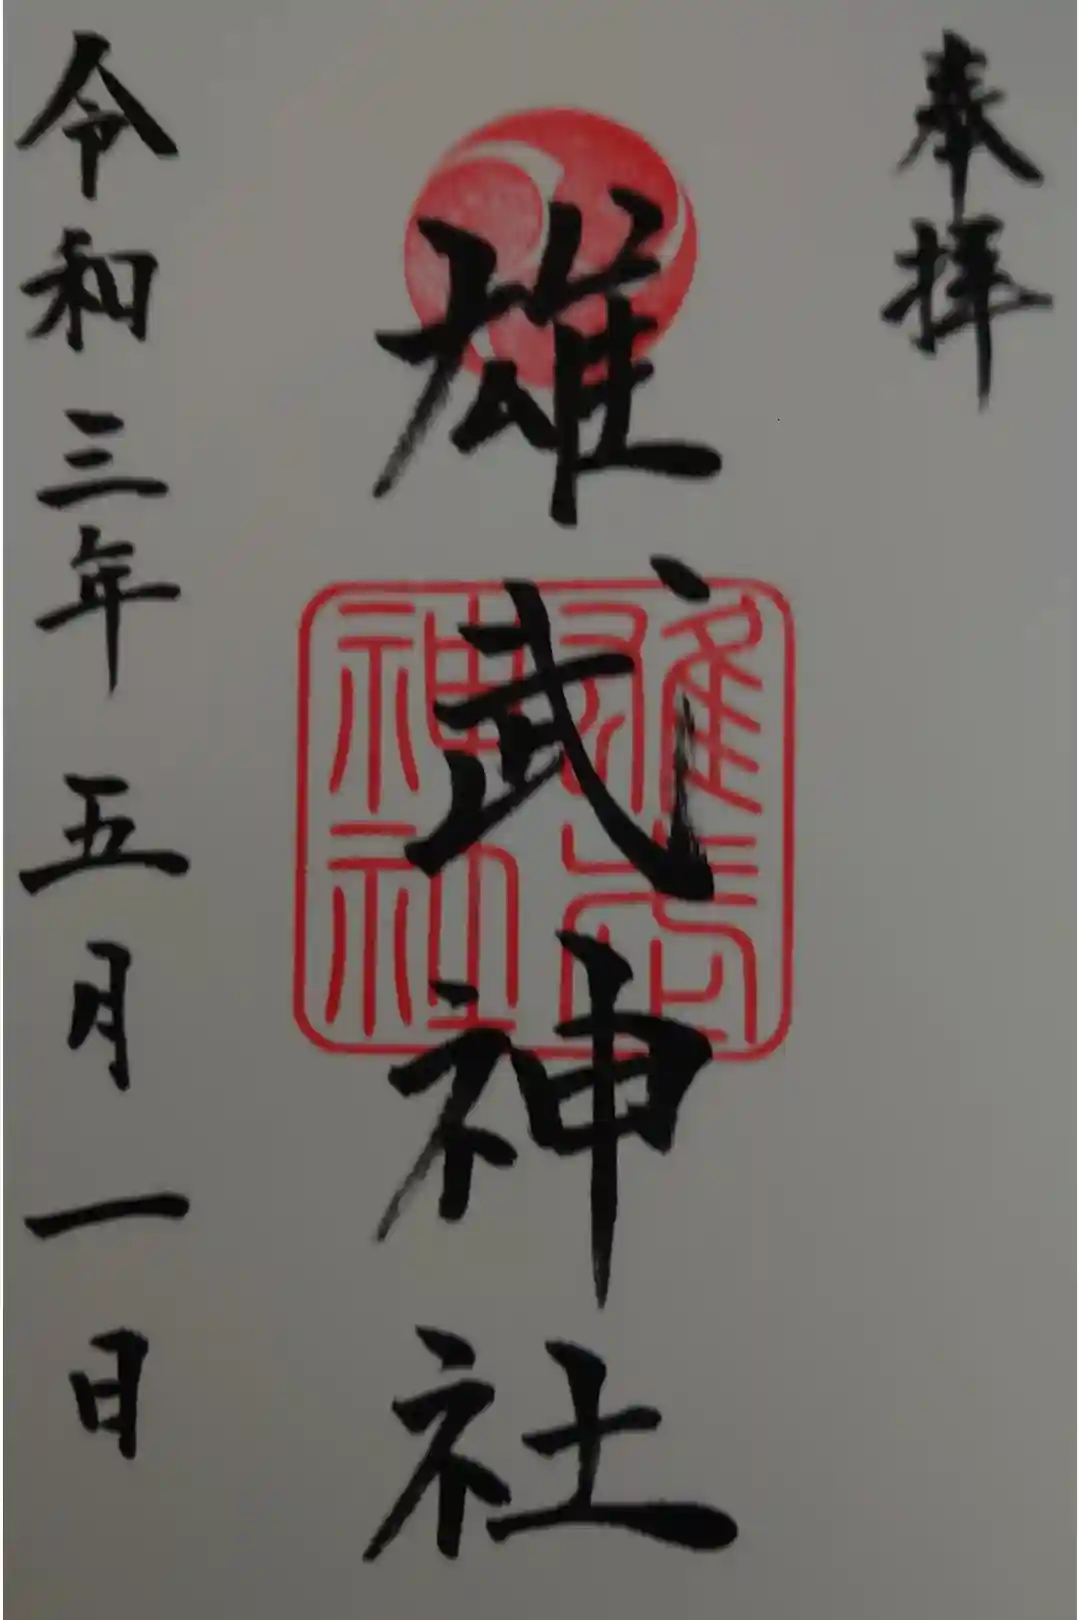 奉拝
雄武神社
雄武
神社
令和三年五月一日